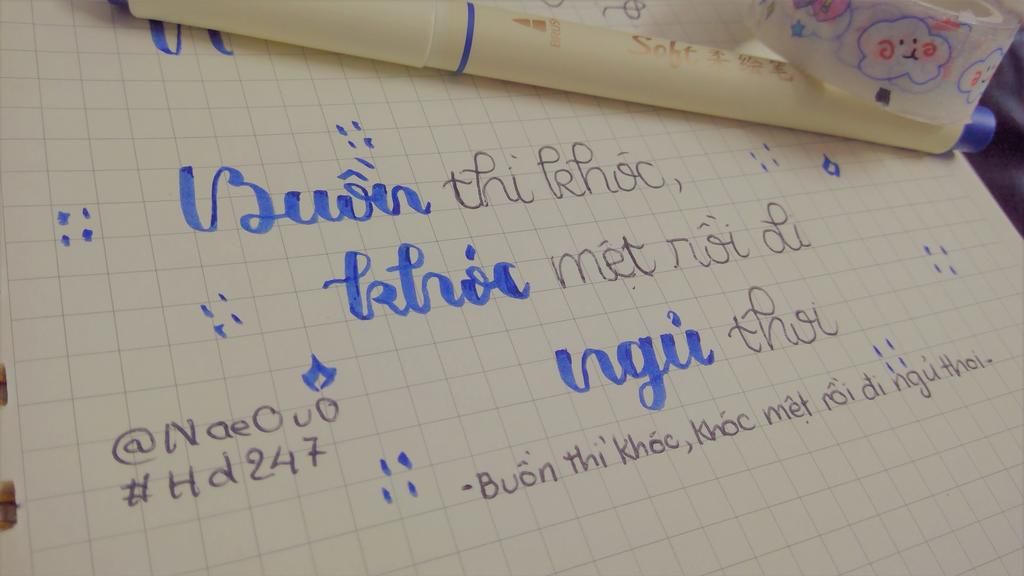 Soft
Buồn thì khóc,
khóc mệt rồi đi
ngủ thơi
- Buồn thì khóc, khóc mệt rồi đi ngủ thơi.
@NaeOuO
#Hd247